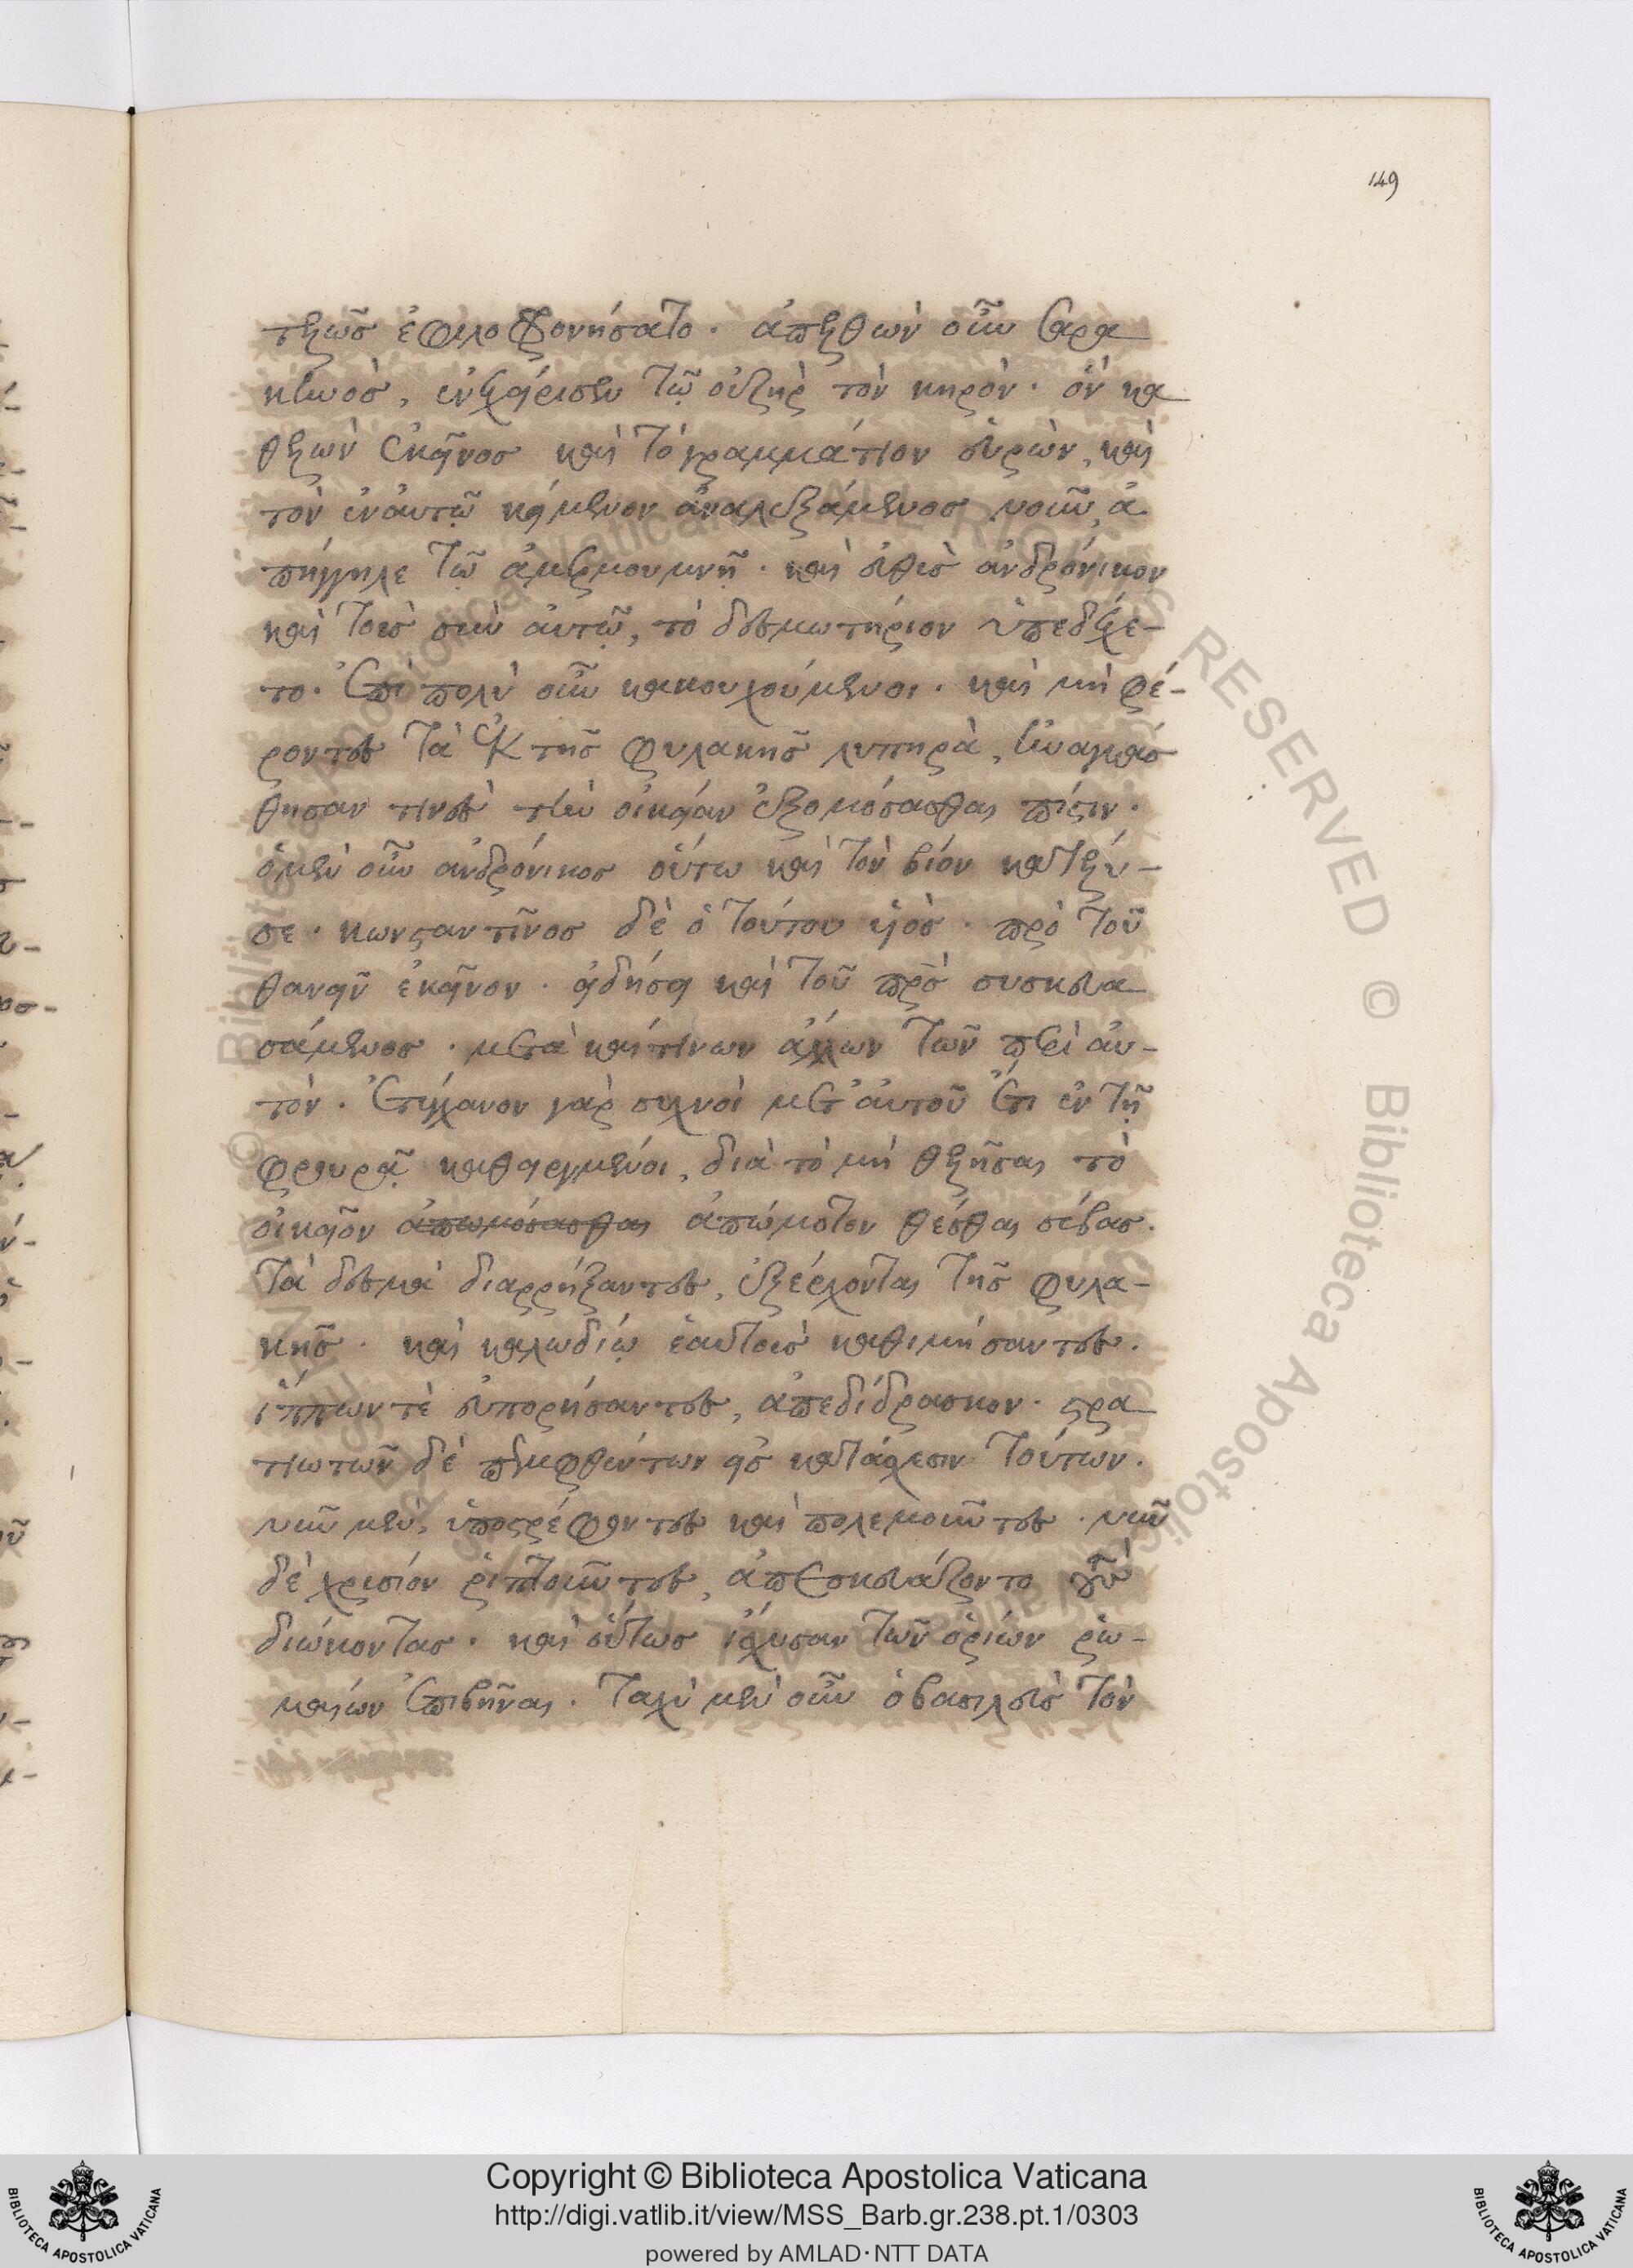 149
τελῶς ἐφιλοφρονήσατο. ἀπελθὼν οὖν σαρα
κηνὸς, ἐνεχείρισεν τῷ οὐζὴρ τὸν κηρὸν. ὃν κα
θελὼν ἐκεῖνος καὶ τὸ γραμμάτιον εὑρὼν, καὶ
τὸν ἐν αὐτῷ κείμενον ἀναλεξάμενος νοῦν, ἀ
πήγγειλε τῷ ἀμερμουμνῇ. καὶ εὐθὺς ἀνδρόνικον
καὶ τοὺς σὺν αὐτῷ, τὸ δεσμωτήριον ὑπεδέχε-
το. ἐπὶ πολὺ οὖν κακουχούμενοι. καὶ μὴ φέ-
ροντες τὰ ἐκ τῆς φυλακῆς λυπηρὰ, ἠναγκάσ
θησαν τινὲς τὴν οἰκείαν ἐξομόσασθαι πίστιν.
ὁ μὲν οὖν ἀνδρόνικος οὕτω καὶ τὸν βίον κατέλυ-
σε. κωνσταντῖνος δὲ ὁ τούτου υἱὸς. πρὸ τοῦ
θανεῖν ἐκεῖνον. εἰδήσει καὶ τοῦ πρς συσκευα
σάμενος. μετὰ καί τινων ἄλλων τῶν περὶ αὐ-
τὸν. ἐτύγχανον γὰρ συχνοὶ μετ' αὐτοῦ ἔτι ἐν τῇ
φρουρᾷ καθειργμένοι, διὰ τὸ μὴ θελῆσαι τὸ
οἰκεῖον ἀπωμόσασθαι ἀπώμοτον θέσθαι σέβας.
τὰ δεσμὰ διαρρήξαντες, ἐξέρχονται τῆς φυλα-
κῆς. καὶ καλωδίῳ ἑαυτοὺς καθιμήσαντες.
ἵππων τὲ εὐπορήσαντες, ἀπεδίδρασκον. στρα
τιωτῶν δὲ πεμφθέντων εἰς κατάσχεσιν τούτων.
νῦν μὲν, ὑποστρέφοντες καὶ πολεμοῦντες. νῦν
δὲ χρυσίον ῥιπτοῦντες, ἀπεσκευάζοντο τοὺς
διώκοντας. καὶ οὕτως ἴσχυσαν τῶν ὁρίων ῥω-
μαίων ἐπιβῆναι. ταχὺ μὲν οὖν ὁ βασιλεὺς τὸν
Copyright © Biblioteca Apostolica Vaticana
http://digi.vatlib.it/view/MSS_Barb.gr.238.pt.1/0303
powered by AMLAD·NTT DATA
BIBLIOTECA APOSTOLICA VATICANA
BIBLIOTECA APOSTOLICA VATICANA